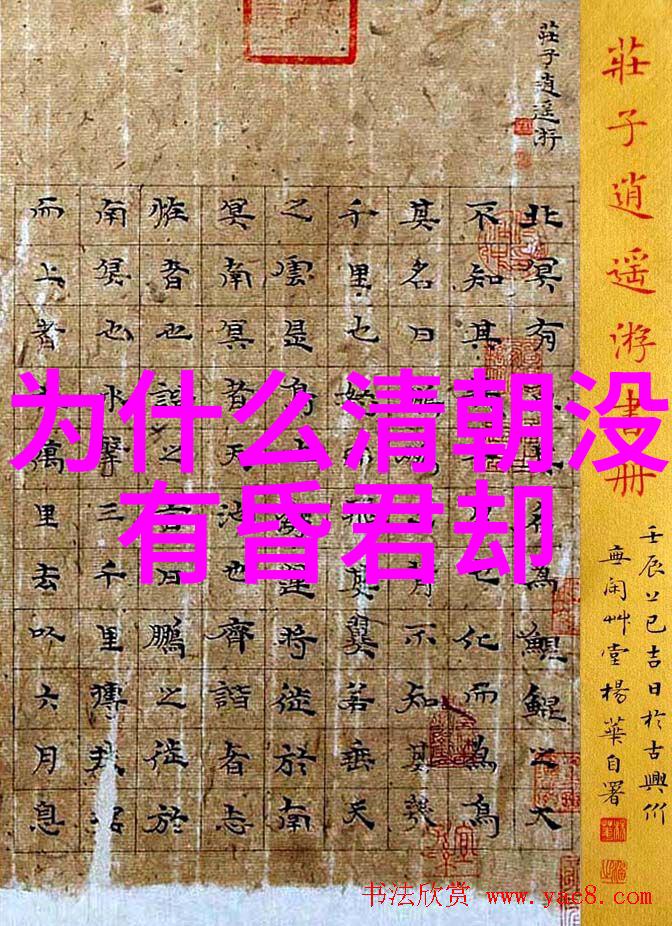 莊子逍遥游書册
壬辰上巳吉日於古興竹
無闲艸堂楊華自署
莊子逍遥游
北冥有名為鯤鯤之大
不知其也化而為鳥
其名曰背不知其幾
千里也飛其翼若垂天
之雲是鳥運將徙於南
冥南冥者天池也齊諧者志
怪者也諧之言曰鵬之徙於
南冥也水擊三千里摶扶搖
而上者萬里去以六月息
为什么清朝没
有昏君却
书法欣赏 www.yac8.com